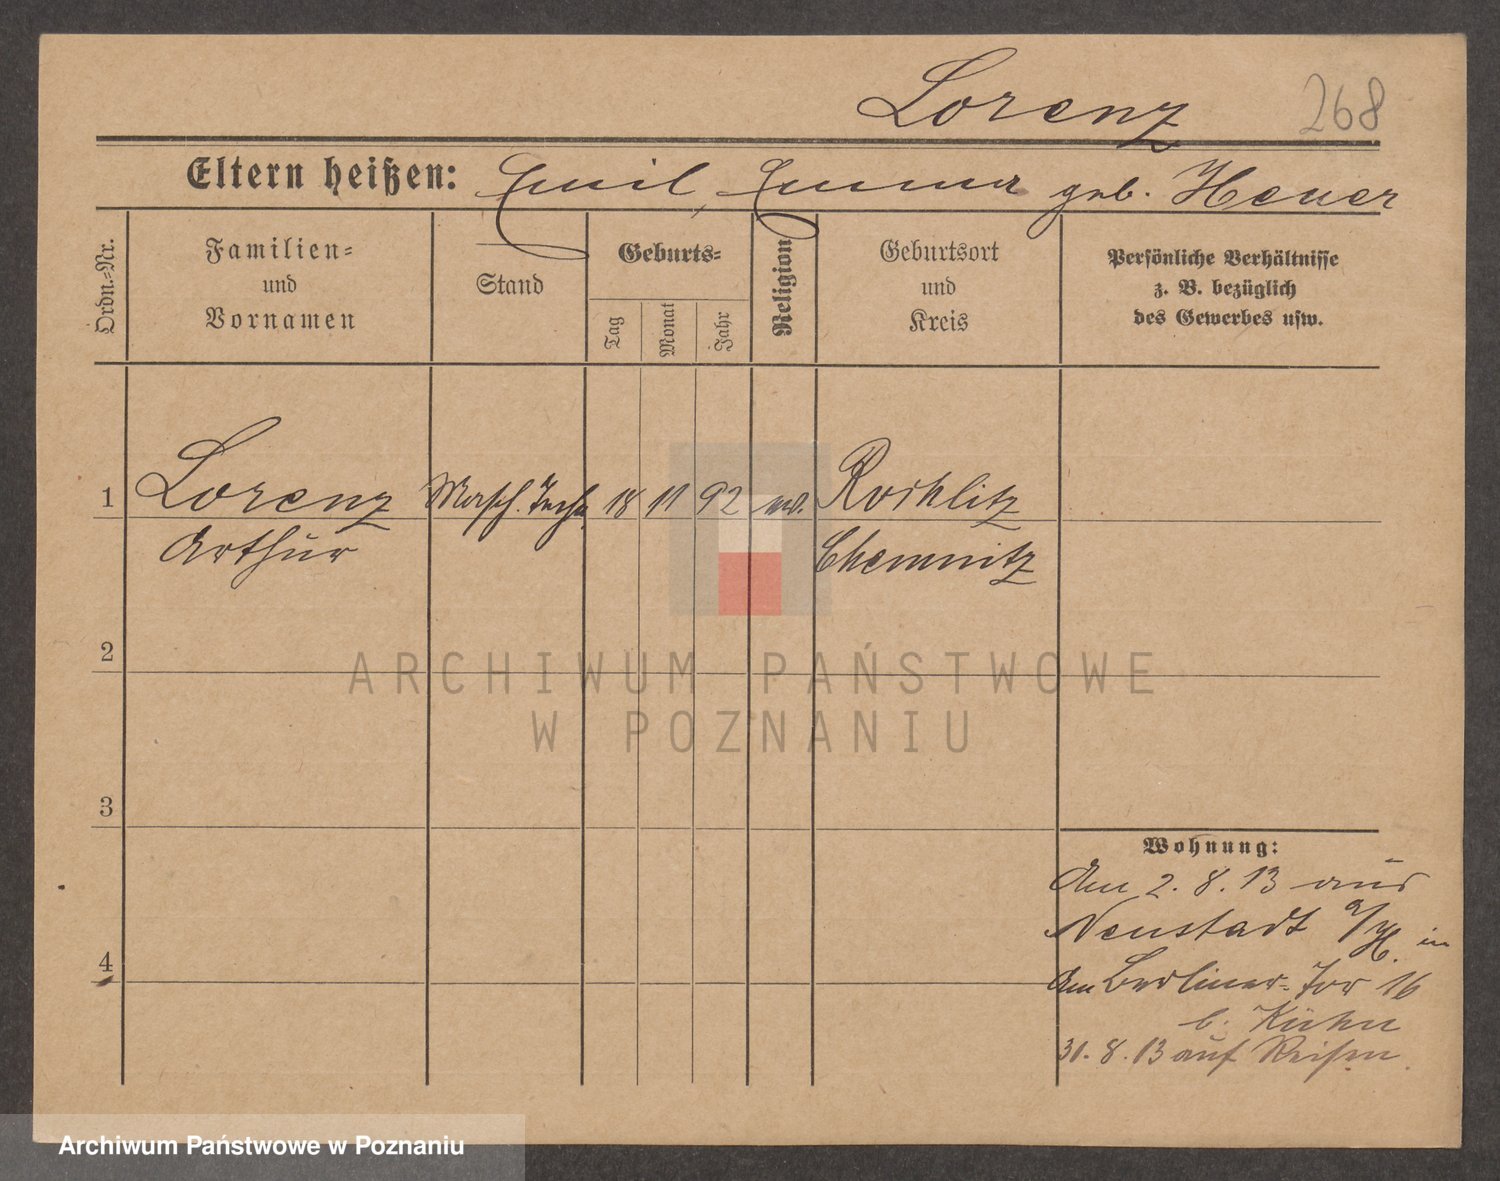 Lorenz 268
Eltern heißen: Emil, Emma geb. Heuer
Ordn.-Nr.
Familien-
und
Vornamen
Stand
Geburts-
Tag
Monat
Jahr
Religion
Geburtsort
und
Kreis
Persönliche Verhältnisse
z. B. bezüglich
des Gewerbes usw.
1 Lorenz Masch. Techn. 18 11 92 ev. Rochlitz
Arthur Chemnitz
2
3
4
Wohnung:
Am 2. 8. 13 aus
Neustadt a/H. in
Am Berliner-Tor 16
b. Kühn
31. 8. 13 auf Reisen.
ARCHIWUM PAŃSTWOWE
W POZNANIU
Archiwum Państwowe w Poznaniu